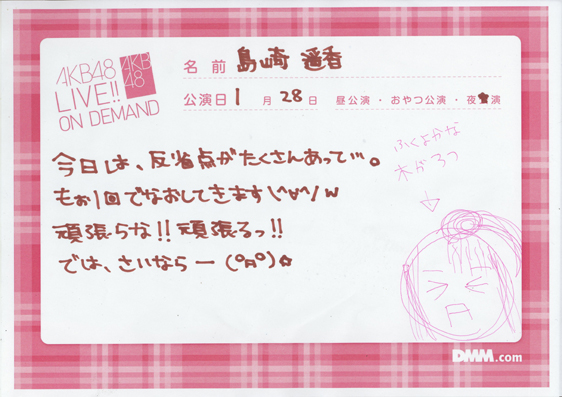 AKB48
LIVE!!
ON DEMAND
AKB
48
名前 島崎 遥香
公演日 1月28日 昼公演・おやつ公演・夜公演
今日は、反省点がたくさんあって…。
もぉ1回でなおしてきます\^∀^/w
頑張らな!!頑張るっ!!
では、さいならー(°Д°)☆
ふくよかな
DMM.com